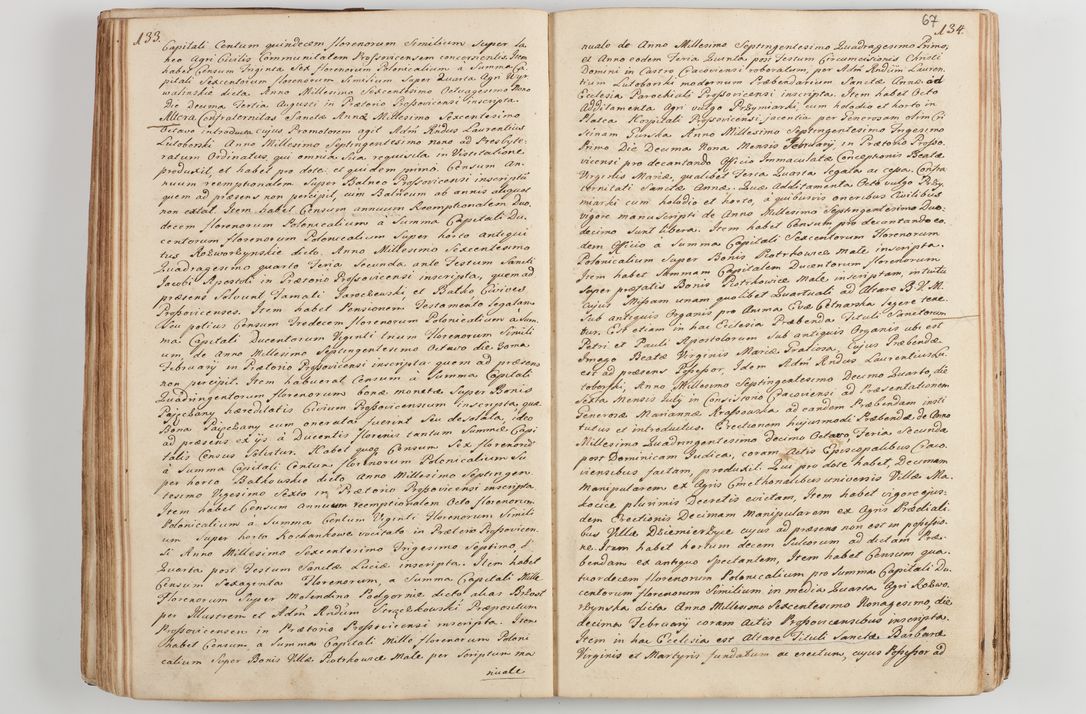 133.
Capitali Centum quindecem florenorum Similium Super la
neo Agri Civilis Communitatem Prossovicensem concernentis. Item
habet Censum Triginta Sex florenorum Polonicalium à Summa Ca
pitali Sexcentium florenorum Similium Super Quarta Agri
walinskie dicta Anno Millesimo Sexcentesimo Octuagesimo Nono
die decima Tertia Augusti in Prætorio Prossovicensi inscripta.
Altera Confraternitas Sanctæ Annæ Millesimo Sexcentesimo
Octavo introducta cujus Promotorem agit Adm Rndus Laurentius
Lutoborski Anno Millesimo Septingentesimo nono ad Presbyte-
ratum Ordinatus, qui omnia Sua requisita in Visitatione
produxit, et habet pro dote, et quidem primo Censum An-
nuum reemptionalem Super Balneo Prossovicensi inscriptũ
quem ad præsens non percipit, cum Balneum ab annis aliquot
non extat. Item habet Censum annuum Reemptionalem Duo
decem florenorum Polonicalium à Summa Capitali Du
centorum florenorum Polonicalium Super horto antiqui
tus Rożworżynskie dicto, Anno Millesimo Sexcentesimo
Quadragesimo quarto Feria Secunda ante Festum Sancti
Jacobi Apostoli in Prætorio Prossovicensi inscripta, quem ad
præsens Solvunt Famati Jaroczewski et Batko Cives
Prossovicenses. Item habet Pensionem Testamento legatam
Seu potius Censum Tredecem florenorum Polonicalium à Sum
ma Capitali Ducentorum Viginti trium florenorum Simili
um, de Anno Millesimo Septingentesimo Octavo die Nona
Februarij in Prætorio Prossovicensi inscripta quem ad præsens
non percipit. Item habuerat Censum à Summa Capitali
Quadringentorum florenorum bonæ monetæ Super Bonis
Poiechany hæreditatis Civium Prossovicensium inscripta quæ
Bona Poiechany cum onerata fuerint Seu desolata, ideo
ad præsens ex ijs à Ducentis florenis tantum Summæ Capi
talis Census solvitur. Habet quoque Censum Sex florenorũ
à Summa Capitali Centum florenorum Polonicalium Su
per horto Batkowskie dicto Anno Millesimo Septingen
tesimo Vigesimo Sexto in Prætorio Prossovicensi inscripta
Item habet Censum Annuum reemptionalem Octo florenorum
Polonicalium à Summa Centum Viginti florenorum Simili
um Super horto Kochankowe vocitato in Prætorio Prossovicen
Si Anno Millesimo Sexcentesimo Trigesimo Septimo, F
Quarta post Festum Sanctæ Luciæ inscripta. Item habet
Censum Sexaginta Florenorum, a Summa Capitali Mille
Florenorum Super Molendino Podgornie dicto alias Brzost
per Illustrem et Adm Rndum Sierzchowski Præpositum
Prossovicensem in Prætorio Prossovicensi inscripta. Item
habet Censum, a Summa Capitali Mille, florenorum Poloni
calium Super Bonis Villæ Piotrkowice Małe per Scriptum ma
nuale
67
134.
nuale de Anno Millesimo Septingentesimo Quadragesimo Primo,
et Anno eodem Feria Quinta post Festum Circumcisionis Christi
Domini in Castro Cracoviensi roboratum, per Adm Rndum Lauren
tium Lutoborski modernum Præbendarium Sanctæ Annæ ad
Ecclesia Parochiali Prossovicensi inscripta. Item habet Octo
Additamenta Agri vulgo Przymiarki, cum holodio et horto in
Platea Hospitali Prossovicensi jacentia per Generosam olim Cri
stinam Furska Anno Millesimo Septingentesimo Trigesimo
Primo Die Decima Nona Mensis Februarij in Prætorio Prosso
vicensi pro decantando Officio Immaculatæ Conceptionis Beatæ
Virginis Mariæ, qualibet Feria Quarta legata ac cepa. Confra
ternitati Sanctæ Annæ. Quæ Additamenta Octo vulgo Przy
miarki cum holodio et horto, à quibusvis oneribus Civilibus
vigore manuscripti de Anno Millesimo Septingentesimo Duo
decimo Sunt libera. Item habet Censum pro decantando eo
dem Officio à Summa Capitali Sexcentorum Florenorum
Polonicalium Super Bonis Piotrkowice Małe inscripta.
Item habet Summam Capitalem Ducentorum florenorum
Super præfatis Bonis Piotrkowice Małe inscriptam, intuitu
cujus Missam unam quolibet Quartuali ad Altare B.V.M.
Sub antiquis Organis pro Anima Evæ Cetnarska legere tene-
tur. Est etiam in hac Ecclesia Præbenda Tituli Sanctorum
Petri et Pauli Apostolorum Sub antiquis Organis ubi est
Imago Beatæ Virginis Mariæ Gratiosa, Cujus Præbendæ
est ad præsens Possessor, Idem Adm Rndus Laurentius Lu
toborski, Anno Millesimo Septingentesimo Decimo Quarto die
Sexta Mensis July in Consistorio Cracoviensi ad Præsentationem
Generosæ Mariannæ Krassowska ad eandem Præbendam insti
tutus et introductus. Erectionem hujusmodi Præbendæ de Anno
Millesimo Quadringentesimo decimo Octavo Feria Secunda
post Dominicam Judica, coram Actis Episcopalibus Craco
viensibus factam, produxit. Qui pro dote habet, Decimam
Manipularem ex Agris Cmethonalibus universis Villæ Ma
kocice plurimis Decretis evictam, Item habet vigore ejus-
dem Erectionis Decimam Manipularem ex Agris Prædiali
bus Villæ Dziemierżyce cujus ad præsens non est in possessio
ne. Item habet hortum decem Sulcorum ad dictam Præ
bendam ex antiquo Spectantem, Item habet Censum qua-
tuordecem florenorum Polonicalium pro Summa Capitali Du
centorum florenorum Similium in media Quarta Agri Rożwo
rżynska dicta Anno Millesimo Sexcentesimo Nonagesimo, die
decima Februarij coram Actis Prossovicensibus inscripta.
Item in hac Ecclesia est Altare Tituli Sanctæ Barbaræ
Virginis et Martyris fundatum ac erectum, cujus Possessor ad